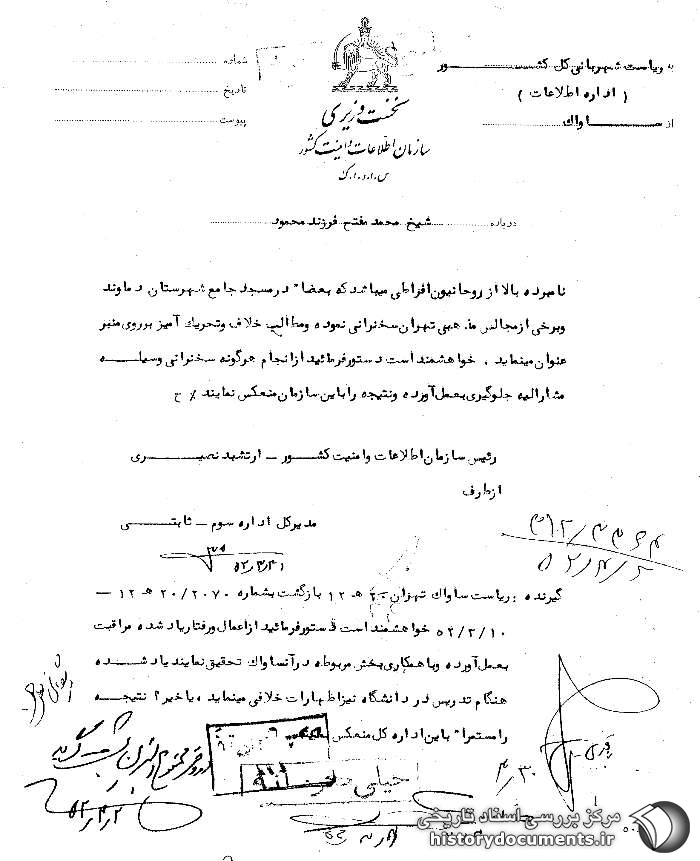 به ریاست شهربانی کل کشـــور
( اداره اطلاعات )
از ســـاواک
نخست وزیری
سازمان اطلاعات و امنیت کشور
س.ا.و.ا.ک
شماره
تاریخ
پیوست
درباره شیخ محمد مفتح فرزند محمود
نامبرده بالا از روحانیون افراطی میباشد که بعضا" در مسجد جامع شهرستان دماوند
و برخی از مجالس مذهبی تهران سخنرانی نموده و مطالب خلاف و تحریک آمیز بر روی منبر
عنوان مینماید . خواهشمند است دستور فرمائید از انجام هرگونه سخنرانی وسیلـــه
مشارالیه جلوگیری بعمل آورده و نتیجه را باین سازمان منعکس نمایند ٪ ح
رئیس سازمان اطلاعات و امنیت کشـــور - ارتشبد نصیـــری
از طرف
مدیر کل اداره سوم - ثابتـــی
گیرنده : ریاست ساواک تهران - ۱۲ هـ ۲۰ بازگشت بشماره ۲۰/۲۰۷۰ هـ ۱۲ -
۵۲/۲/۱۰ خواهشمند است دستور فرمائید از اعمال و رفتار یاد شده مراقبت
بعمل آورده و با همکاری بخش مربوطه در آن ساواک تحقیق نمایند یاد شـــده
هنگام تدریس در دانشگاه نیز اظهارات خلافی مینماید ، یا خیر ؟ نتیجـــه
را مستمرا" باین اداره کل منعکس
خیلی محرمانه
۵۲/۴/۲
مرکز بررسی اسناد تاریخی
historydocuments.ir